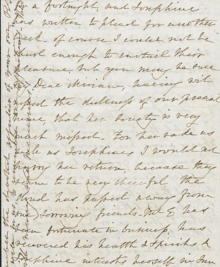 for a fortnight, and Josephine
has written to plead for another
of course I could not be
enough to curtail their
pleasure, but you may be sure
my Dear Miriam, having not
the dullness of our
that her society is very
much missed. For her sake as
well as Josephine's I would not
hurry her return because they
to be very cheerful the
cloud has passed away from
friends. Mr G has
been fortunate in business, has
recovered his health & spirits &
Josephine interests herself in